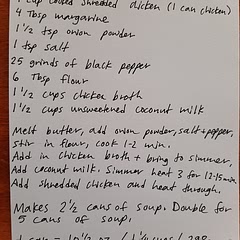 1 cup cooked shredded chicken (1 can chicken)
4 Tbsp margarine
1 1/2 tsp onion powder
1 tsp salt
25 grinds of black pepper
6 Tbsp flour
1 1/2 cups chicken broth
1 1/2 cups unsweetened coconut milk
Melt butter, add onion powder, salt + pepper,
stir in flour, cook 1-2 min.
Add in chicken broth + bring to simmer.
Add coconut milk. Simmer heat 3 for 12-15 min
Add shredded chicken and heat through.
Makes 2 1/2 cans of soup. Double for
5 cans of soup.
1 can = 10 1/2 oz / 1 1/4 cups / 298